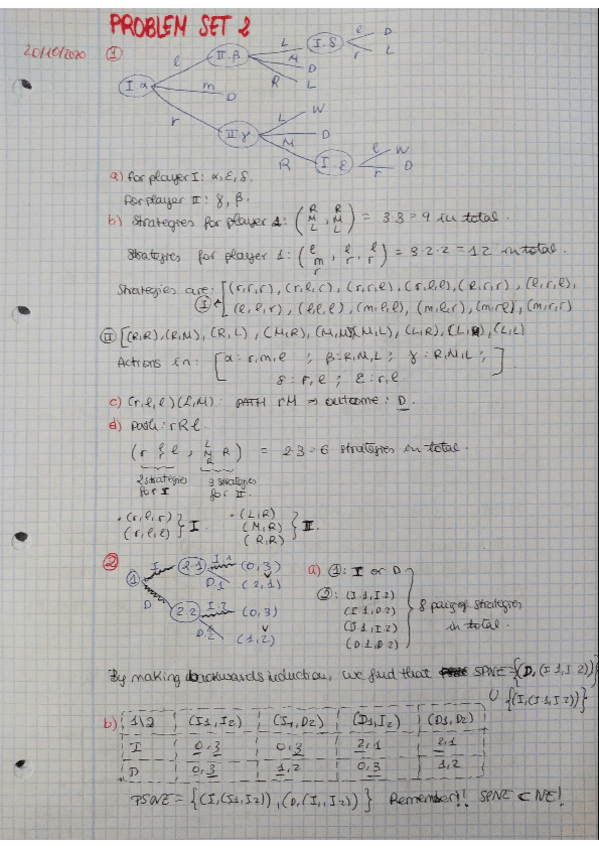 PROBLEM SET 2
20/10/2020
①
I.α l II.β L I.δ l D
r L
M D
R L
m D
r II.γ L W
M D
R I.ε l W
r D
a) For player I: α, ε, δ.
For player II: γ, β.
b) Strategies for player 2: (R M L, R M L) = 3·3 = 9 in total.
Strategies for player 1: (l m r, l r, l r) = 3·2·2 = 12 in total.
Strategies are: [(r,r,r), (r,l,r), (r,r,l), (r,l,l), (l,r,r), (l,r,l),
I (l,l,r), (l,l,l), (m,l,l), (m,l,r), (m,r,l), (m,r,r)
II [(R,R), (R,M), (R,L), (M,R), (M,M) (M,L), (L,R), (L,M), (L,L)
Actions in: [α: r,m,l ; β: R,M,L ; γ: R,M,L ;
δ: r,l ; ε: r,l. ]
c) (r,l,l) (L,M): PATH rM ⇒ outcome: D.
d) Path: rRl.
(r l r l, L M R R) = 2·3 = 6 strategies in total.
2 strategies for I 3 strategies for II.
• (r,l,r) (r,l,l) } I. • (L,R) (M,R) (R,R) } II.
②
1 I 2.1 I.1 (0,3)
D.1 (2,1)
D 2.2 I.2 (0,3)
D.2 (1,2)
a) ①: I or D
②: (I.1, I.2)
(I.1, D.2)
(D.1, I.2)
(D.1, D.2)
8 pairs of strategies
in total.
By making backwards induction, we find that SPNE = {(D, (I1, I2))}
∪ {(I, (I1, I2))}
b) 1\2 (I1, I2) (I1, D2) (D1, I2) (D1, D2)
I 0,3 0,3 2,1 2,1
D 0,3 1,2 0,3 1,2
PSNE = {(I, (I1, I2)), (D, (I1, I2))} Remember!! SPNE ⊂ NE!